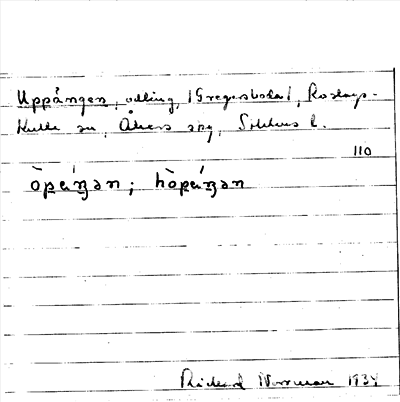 Uppängen, odling, (Gregersboda), Roslags-
Kulla sn, Åkers skg, Sthlms l.
110
òpäŋ́ən; hòpäŋ́ən
Rickard Norrman 1934